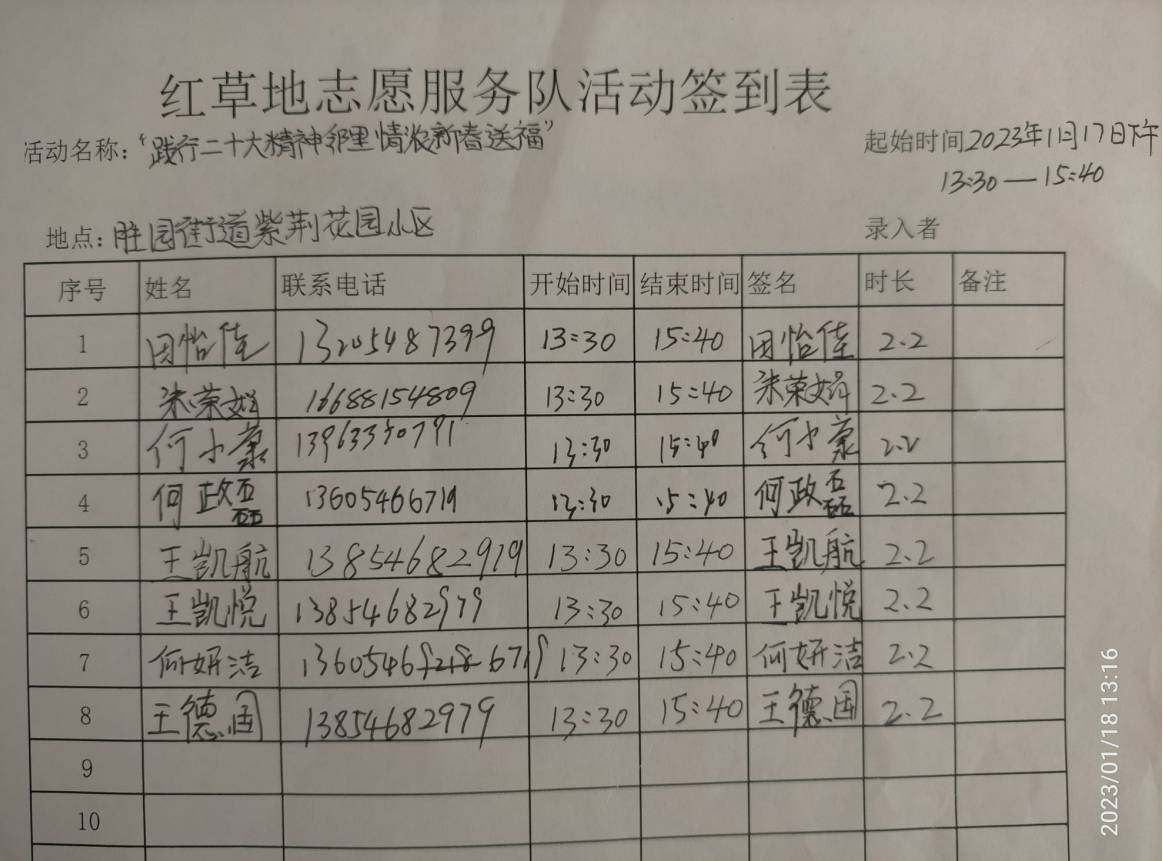 红草地志愿服务队活动签到表
活动名称：“践行二十大精神邻里情浓新春送福”
起始时间2023年1月17日下午
13:30—15:40
地点：胜园街道紫荆花园小区
录入者
序号 姓名 联系电话 开始时间 结束时间 签名 时长 备注
1 田怡佳 13205487399 13:30 15:40 田怡佳 2.2
2 朱荣娟 16688154809 13:30 15:40 朱荣娟 2.2
3 何小蒙 13963350791 13:30 15:40 何小蒙 2.2
4 何政磊 13605466719 13:30 15:40 何政磊 2.2
5 王凯航 13854682919 13:30 15:40 王凯航 2.2
6 王凯悦 13854682979 13:30 15:40 王凯悦 2.2
7 何妍洁 1360546 6719 13:30 15:40 何妍洁 2.2
8 王德国 13854682979 13:30 15:40 王德国 2.2
9
10
2023/01/18 13:16